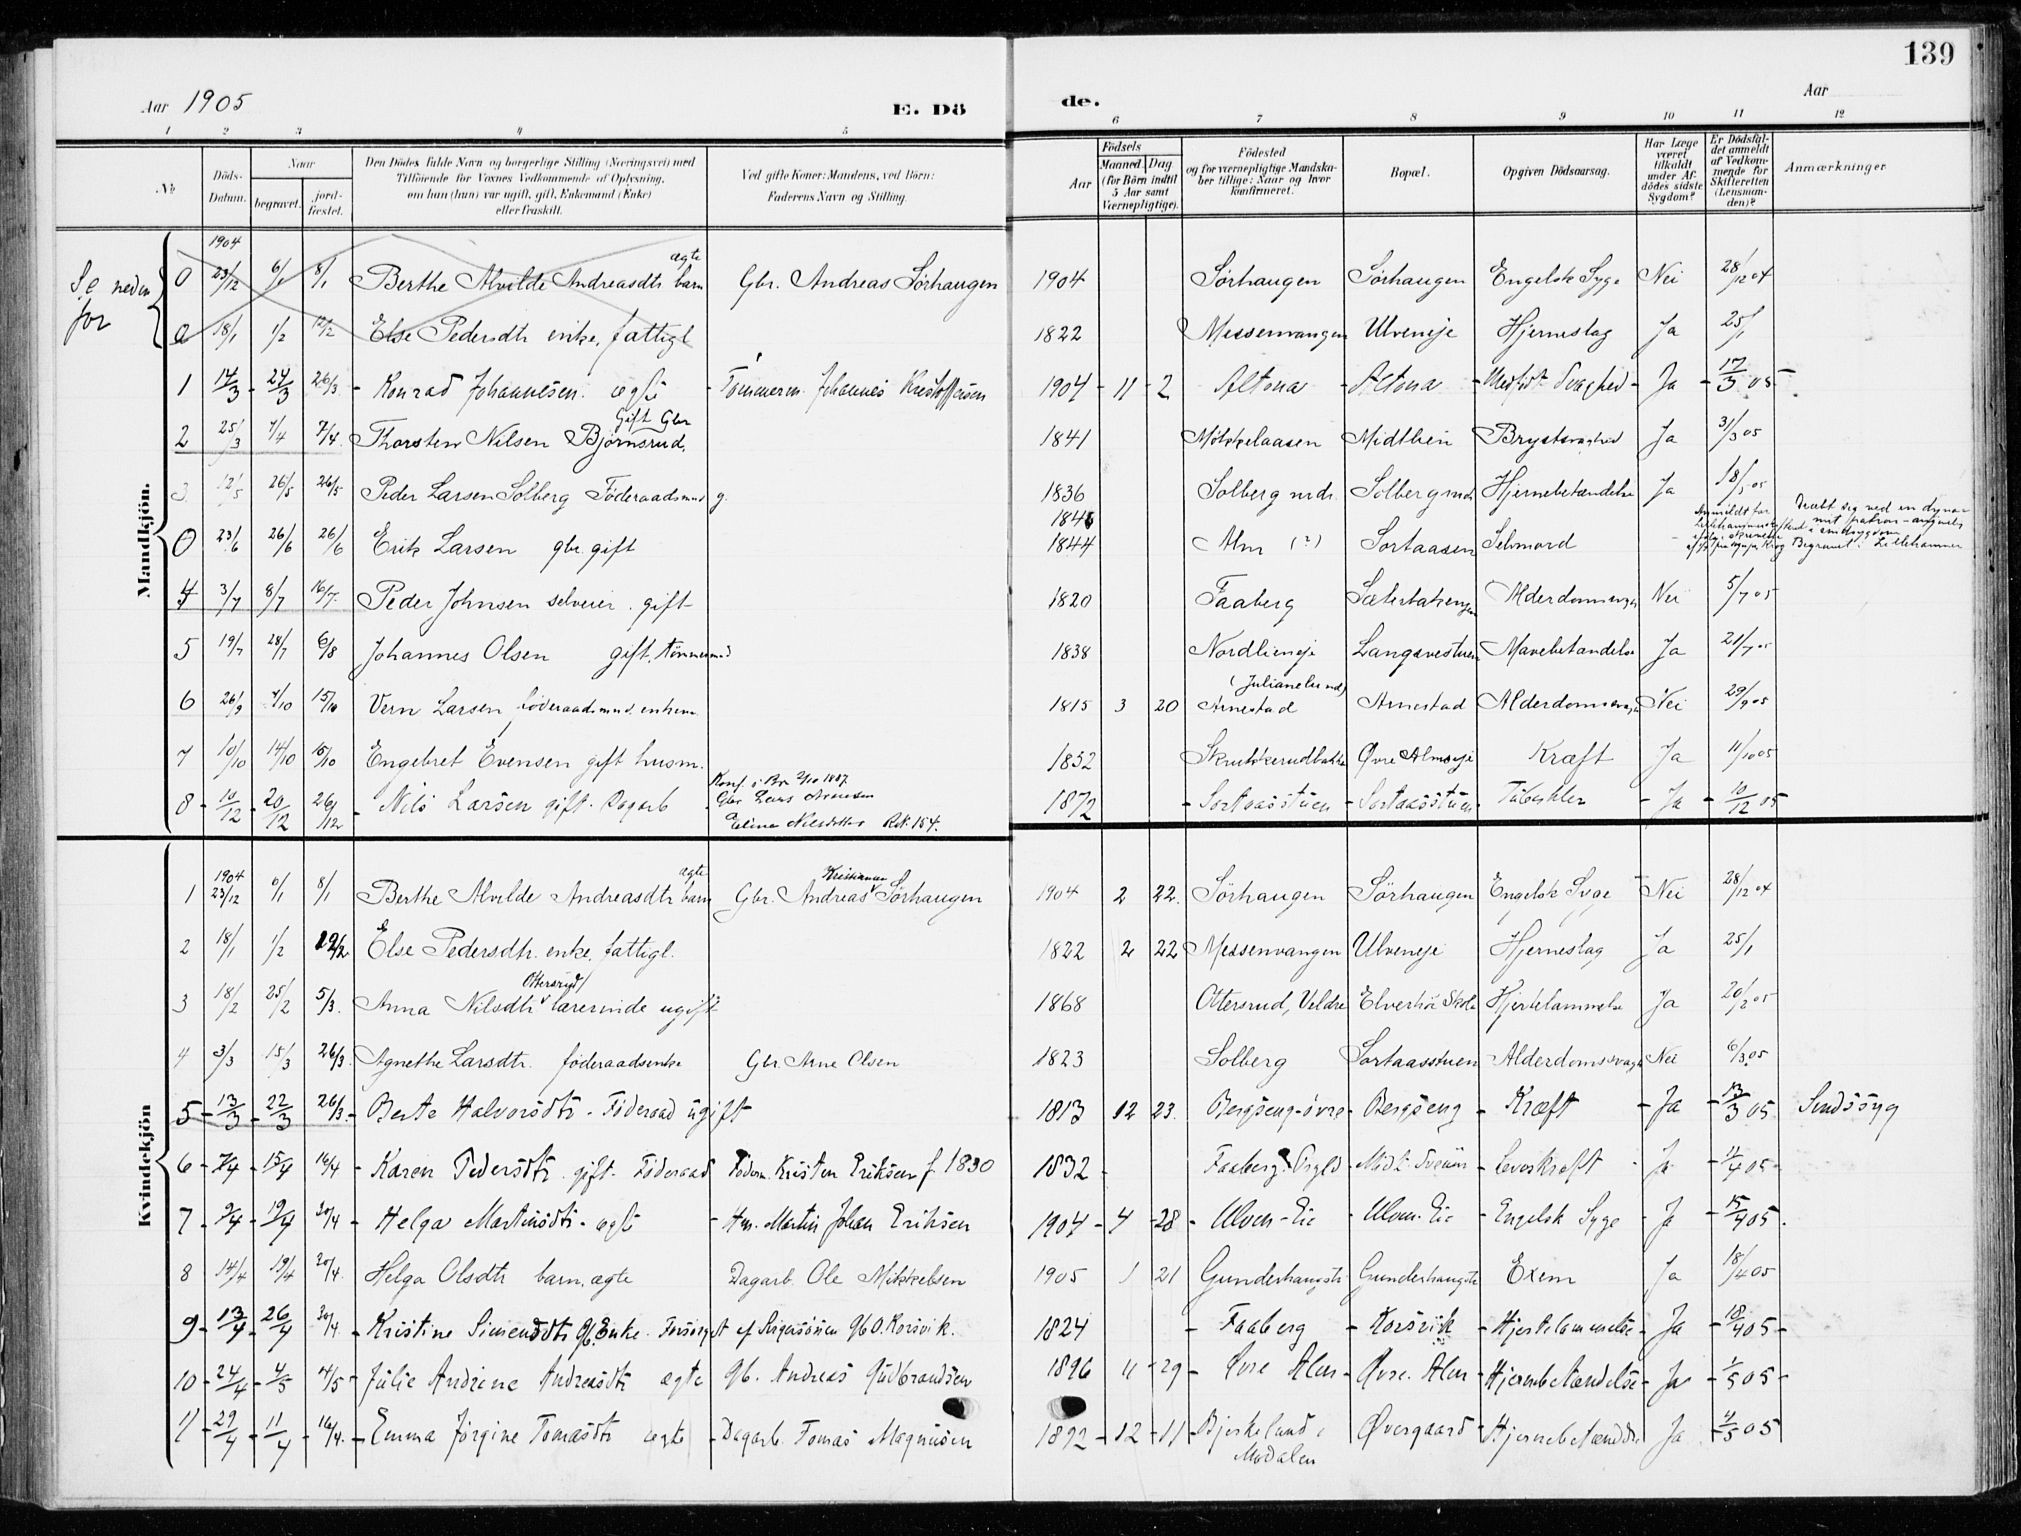 139
Aar 1905 E. Dö de. Aar
1 2 3 4 5 6 7 8 9 10 11 12
No
Döds-Datum.
Naar
begravet.
jord-fæstet.
Den Dödes fulde Navn og borgerlige Stilling (Næringsvei) med
Tilföiende for Voxnes Vedkommende af Oplysning,
om han (hun) var ugift, gift, Enkemand (Enke)
eller fraskilt.
Ved gifte Koner: Mandens, ved Börn:
Faderens Navn og Stilling.
Födsels
Aar
Maaned Dag
(for Börn indtil
5 Aar samt
Værnepligtige).
Födested
og for værnepligtige Mandska-
ber tillige: Naar og hvor
konfirmeret.
Bopæl.
Opgiven Dödsaarsag.
Har Læge
været
tilkaldt
under Af-
dödes sidste
Sygdom?
Er Dödsfal-
det anmeldt
af Vedkom-
mende for
Skifteretten
(Lensman-
den)?
Anmærkninger
Mandkjön.
Se neden for
0 1904 23/12 6/1 8/1 Berthe Alvilde Andreasdtr ægte barn Gbr. Andreas Sørhaugen 1904 Sørhaugen Sørhaugen Engelsk Syge Nei 28/12 04
0 18/1 1/2 12/2 Else Pedersdtr enke, fattigl 1822 Messenvangen Ulveneje Hjerneslag Ja 25/1
1 14/3 24/3 26/3 Konrad Johannesen. ægte Tømmerm. Johannes Kristoffersen 1904 11 2 Altona Altona Medfdt Svaghed Ja 17/3 05
2 25/3 7/4 7/4 Thorsten Nilsen Bjørnsrud, Gift Gbr 1841 Midtlien Brystsvaghed Ja 31/3 05
3 12/5 26/5 26/5 Peder Larsen Solberg Föderaadsmnd g. 1836 Solberg nrdr. Solberg nrdr Hjernebetændelse Ja 18/5 05
0 23/6 26/6 26/6 Erik Larsen gbr. gift 1846 1844 Alm (?) Sortaasen Selmord Anmeldt for Dræbt sig ved en dyna-
mit patron - sindssygdom
Begravet i Lillehammer
4 3/7 8/7 16/7 Peder Johnsen selveier. gift 1820 Faaberg Alderdomssvagh Nei 5/7 05
5 19/7 28/7 6/8 Johannes Olsen gift. tømmermd 1838 Nordlieneje Langsvestuen Mavebetændelse Ja 21/7 05
6 26/9 4/10 15/10 Vern Larsen föderaadsmnd. enkem. 1815 3 20 (Julianelund) Arnestad Arnestad Alderdomssvagh Nei 29/9 05
7 10/10 14/10 15/10 Engebret Evensen gift husm. 1832 Skrukkerudbakke Øvre Almseje Kræft Ja 11/10 05
8 10/12 20/12 26/12 Nils Larsen gift. Dagarb Konf. i Br 2/10 1887.
Gbr. Lars Arnesen
Eline Nilsdatter Rik. 154. 1872 Sortaasstuen Sortaasstuen Tuberkler Ja 10/12 05
Kvindekjön
1 1904 23/12 6/1 8/1 Berthe Alvilde Andreasdtr ægte barn Gbr. Andreas Kristiansen Sørhaugen 1904 2 22. Sörhaugen Sörhaugen Engelsk Syge Nei 28/12 04
2 18/1 1/2 12/2 Else Pedersdtr. enke, fattigl. 1822 2 22 Messenvangen Ulveneje Hjerneslag Ja 25/1
3 18/2 25/2 5/3. Anna Nilsdtr Ottersrud lærerinde ugift 1868 Ottersrud, Veldre Elverhöi Skole Hjertelammelse Ja 20/2 05
4 3/3 15/3 26/3. Agnethe Larsdtr. föderaadsenke Gbr. Arne Olsen 1823 Solberg Sortaasstuen Alderdomssvagh Nei 6/3 05
5 13/3 22/3 26/3. Berte Halvorsdtr - Föderaad ugift 1813 12 23. Bergseng-övre Bergseng Kræft Ja 13/3 05 Sindssyg
6 7/4 15/4 16/4 Karen Pedersdtr. gift. Föderaad Föderm. Kristen Eriksen f 1830 1832 Faaberg Prgld Midt. Sveum Leverkræft Ja 11/4 05
7 9/4 19/4 30/4 Helga Martinsdtr. ægte Hm. Martin Johan Eriksen 1904 4 28 Ulven-Eie Ulven-Eie Engelsk Syge Ja 15/4 05
8 14/4 19/4 30/4 Helga Olsdtr barn, ægte Dagarb. Ole Mikkelsen 1905 1 21 Exem Ja 18/4 05
9 13/4 26/4 30/4 Kristine Simensdtr Gb. Enke. Forsørget af Gb O. Korsvik. 1824 Faaberg Korsvik Hjertelammelse Ja 18/4 05
10 24/4 4/5 14/5 Julie Andrine Andreasdtr ægte Gb. Andreas Gudbrandsen 1896 11 29 Øvre Alm Øvre. Alm Hjernebetændelse Ja 1/5 05
11 29/4 11/4 14/4 Emma Jørgine Tomasdtr ægte Dagarb. Tomas Magnusen 1892 12 11 Bjerkelund i
Modalen Øvergaard Hjernebetændelse Ja 4/5 05